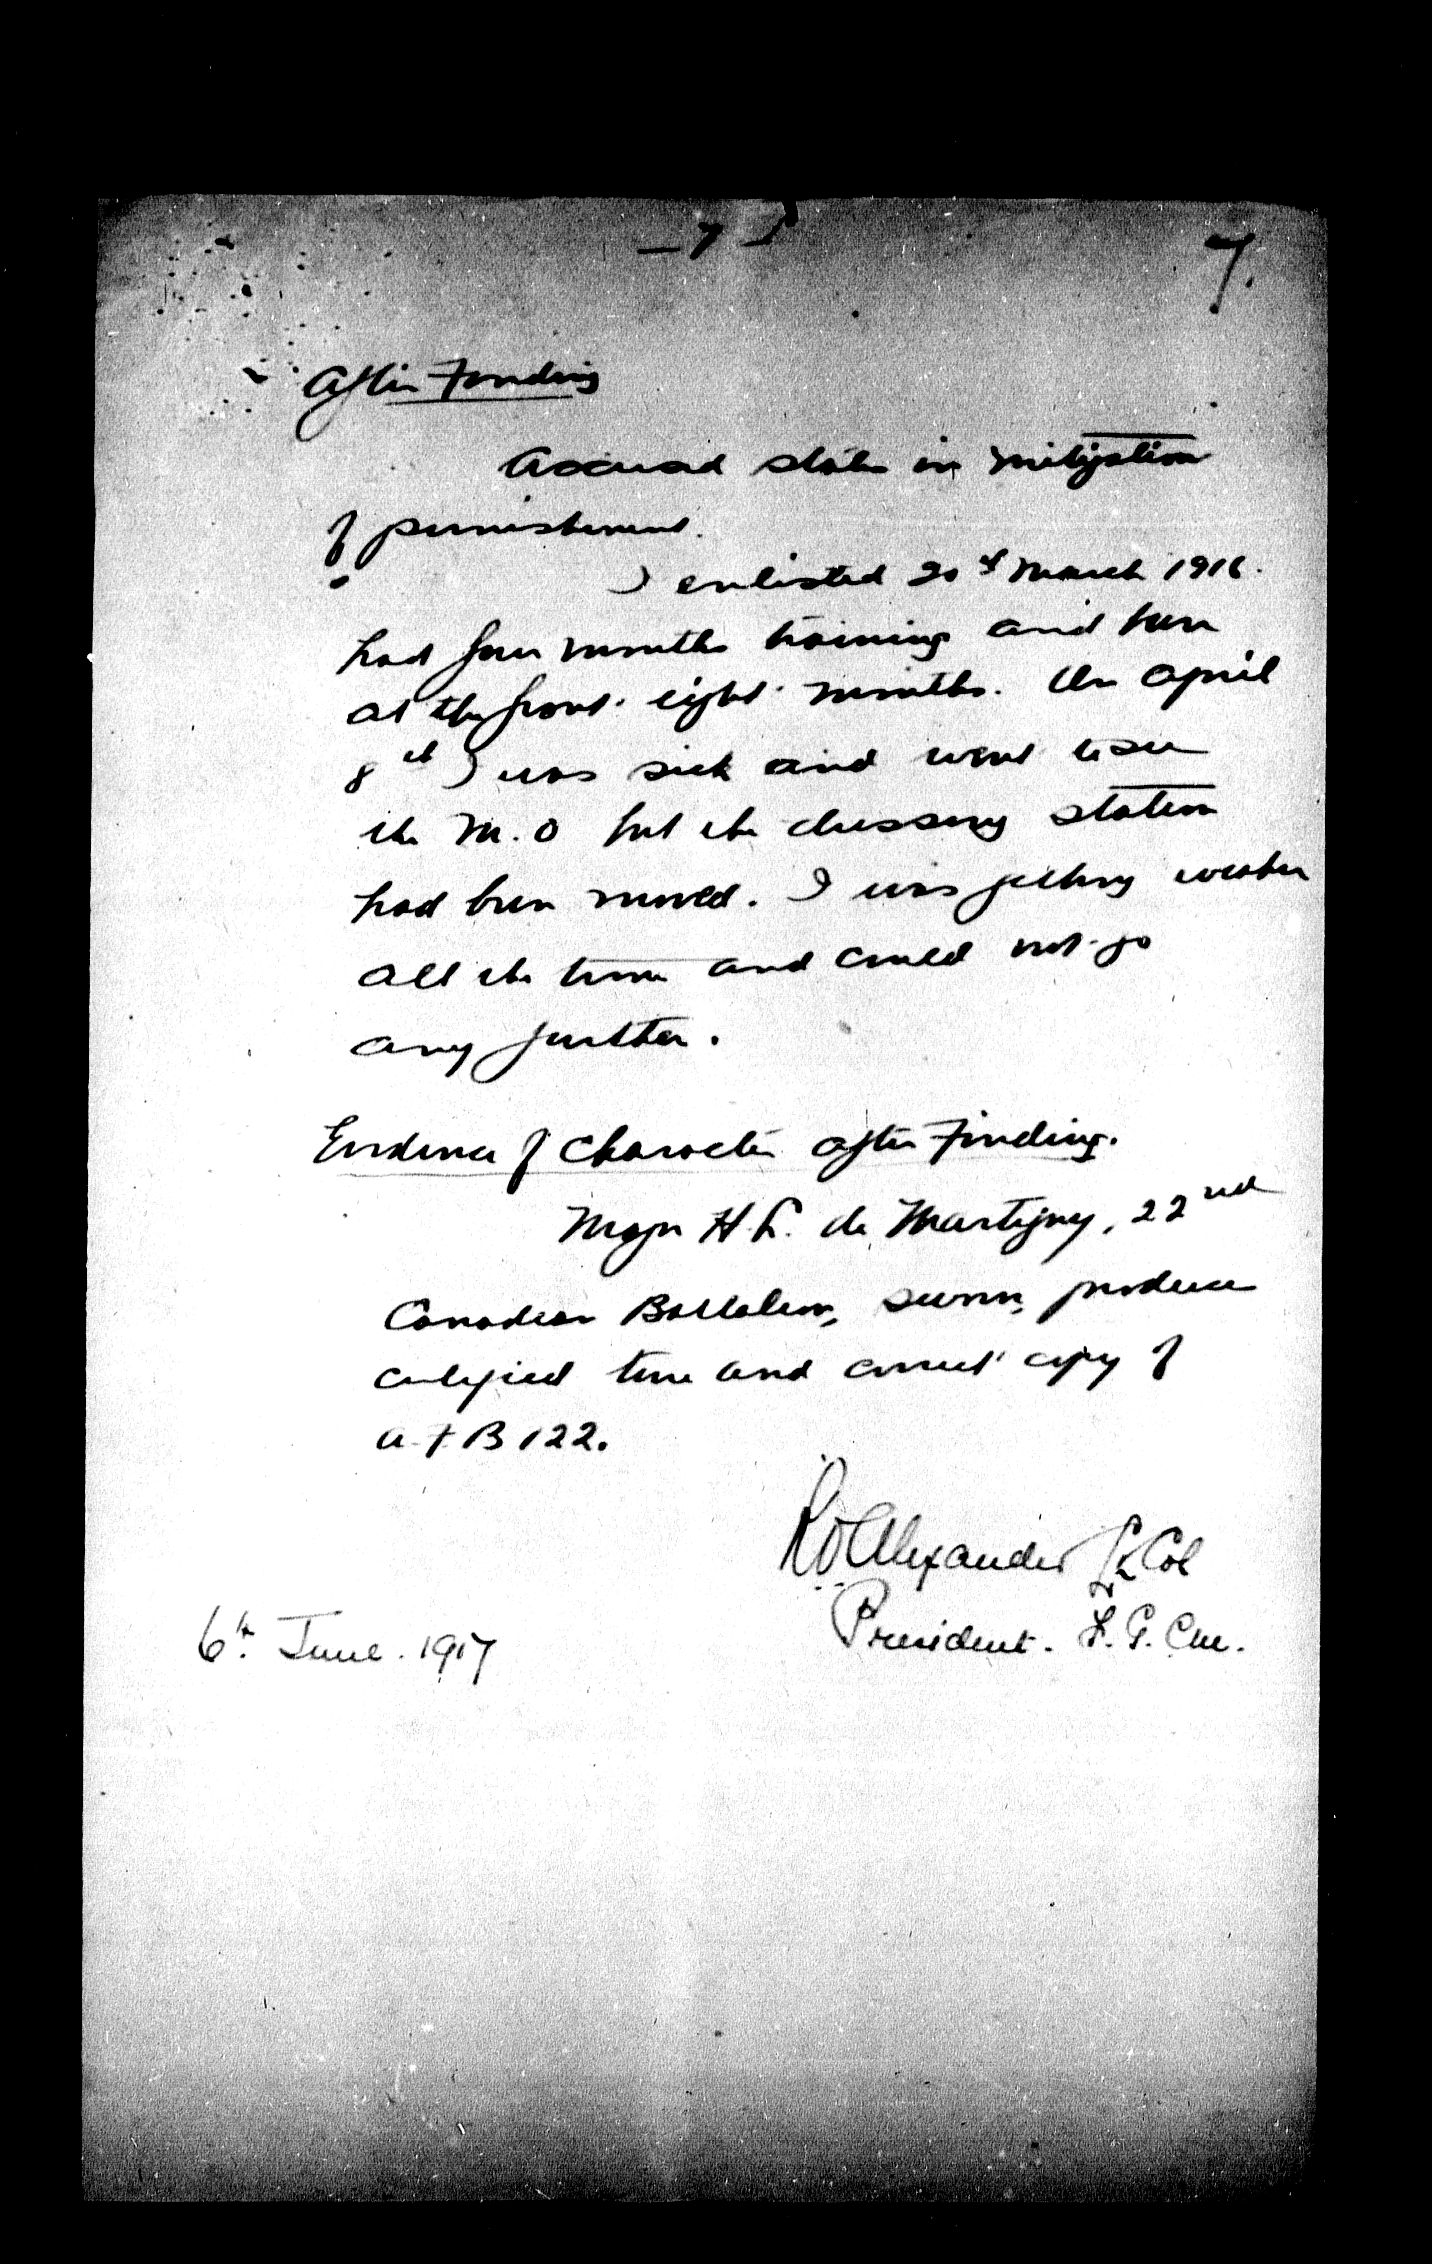 — 7 —
7.
After Finding
Accused states in mitigation
of punishment.
I enlisted 20th March 1916.
had four months training and been
at the front eight months. On April
8th I was sick and went to see
the M.O but the dressing station
had been moved. I was getting weaker
all the time and could not go
any further.
Evidence of Character after Finding.
Major H.L. de Martigny, 22nd
Canadian Battalion, sworn, produces
certified true and correct copy of
A.F.B 122.
R O Alexander Lt Col
President. F.G.C.M.
6th June. 1917